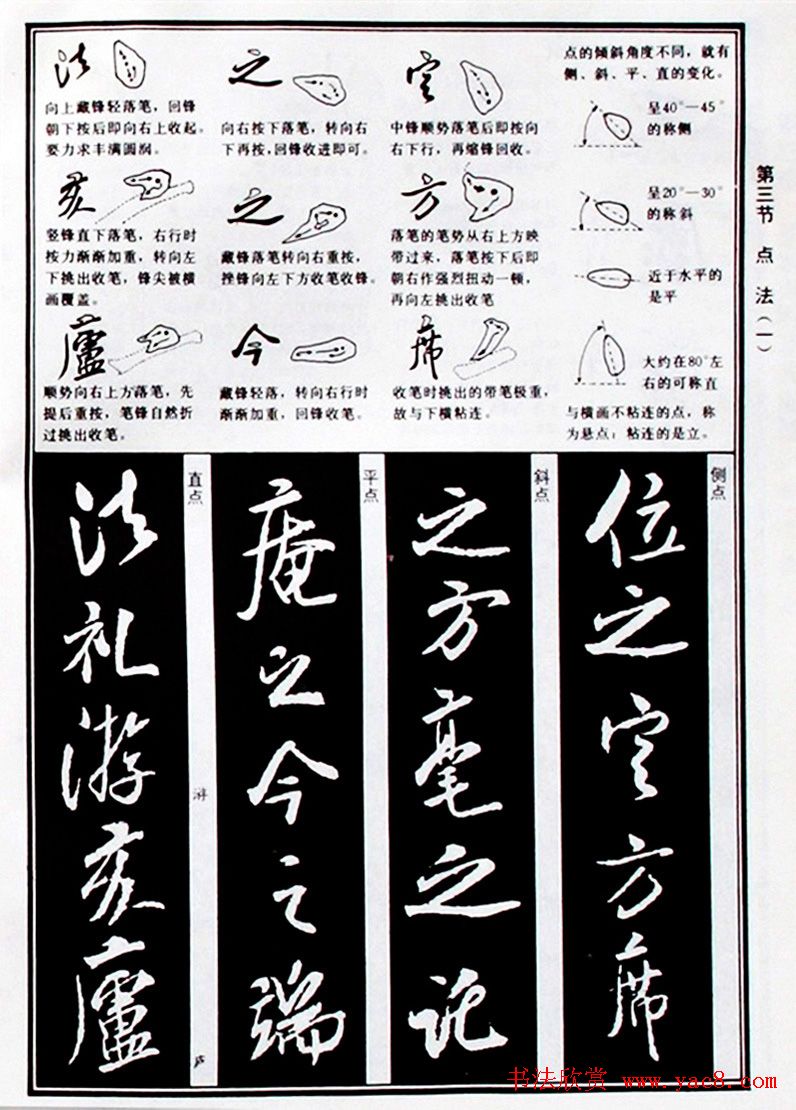 第三节 点法(一)
法
向上藏锋轻落笔，回锋
朝下按后即向右上收起。
要力求丰满圆润。
之
向右按下落笔，转向右
下再按，回锋收进即可。
定
中锋顺势落笔后即按向
右下行，再缩锋回收。
点的倾斜角度不同，就有
侧、斜、平、直的变化。
呈40°—45°
的称侧
亥
竖锋直下落笔，右行时
按力渐渐加重，转向左
下挑出收笔，锋尖被横
画覆盖。
之
藏锋落笔转向右重按，
挫锋向左下方收笔收锋。
方
落笔的笔势从右上方映
带过来，落笔按下后即
朝右作强烈扭动一顿，
再向左挑出收笔
呈20°—30°
的称斜
近于水平的
是平
廬
顺势向右上方落笔，先
提后重按，笔锋自然折
过挑出收笔。
今
藏锋轻落，转向右行时
渐渐加重，回锋收笔。
席
收笔时挑出的带笔极重，
故与下横粘连。
大约在80°左
右的可称直
与横画不粘连的点，称
为悬点；粘连的是立。
侧点
位之定方席
斜点
之方毫之
平点
庵之今之端
直点
法礼游亥廬
游
庐
书法欣赏 www.yac8.com